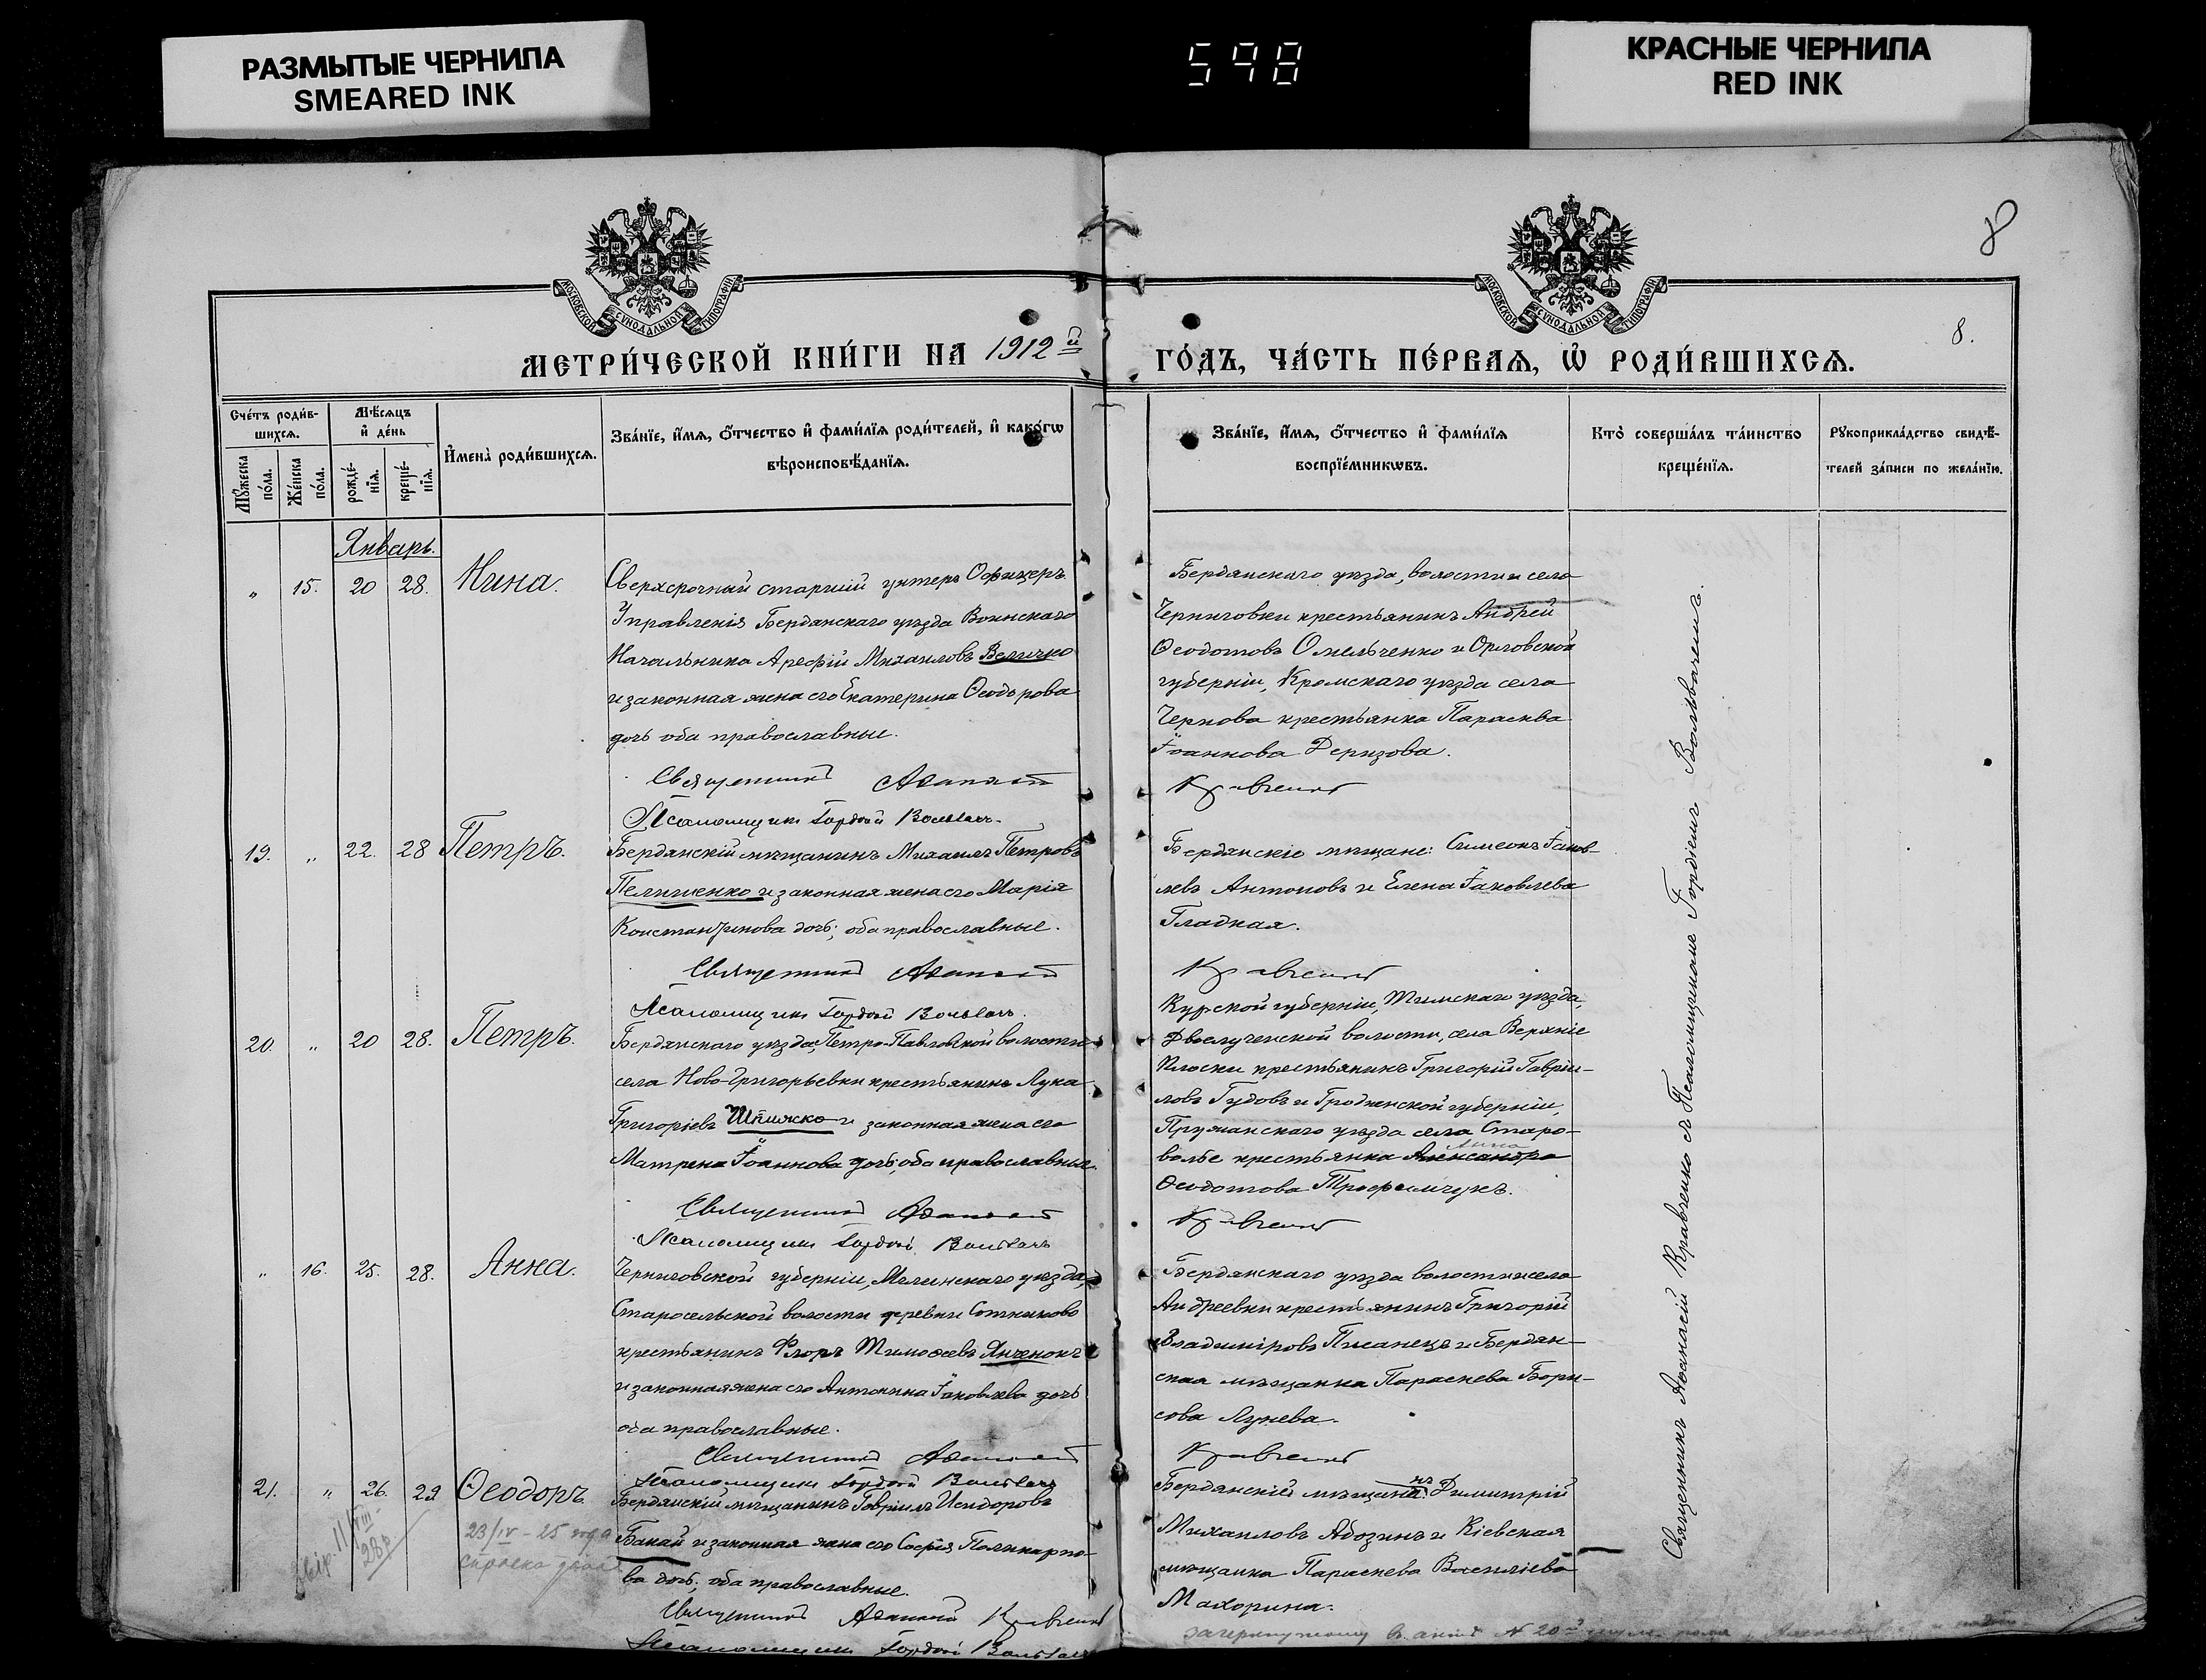 РАЗМЫТЫЕ ЧЕРНИЛА
SMEARED INK
598
КРАСНЫЕ ЧЕРНИЛА
RED INK
8
МОСКОВСКОЙ СѴНОДАЛЬНОЙ ТИПОГРАФІИ
МОСКОВСКОЙ СѴНОДАЛЬНОЙ ТИПОГРАФІИ
8.
МЕТРИ́ЧЕСКОЙ КНИ́ГИ НА 1912й
ГО́ДЪ, ЧА́СТЬ ПЕ́РВАѦ, Ѡ҆ РОДИ́ВШИХСѦ.
Сче́тъ роди́в-
шихсѧ.
Мꙋ́жеска по́ла.
Же́нска по́ла.
Мѣ́сѧцъ
и҆ де́нь
рожде́-нїѧ.
креще́-нїѧ.
И҆мена̀ роди́вшихсѧ.
Зва́нїе, и҆́мѧ, ѻ҆́тчество и҆ фами́лїѧ роди́телей, и҆ како́гѡ
вѣроисповѣ́данїѧ.
Зва́нїе, и҆́мѧ, ѻ҆́тчество и҆ фами́лїѧ
воспрїе́мникѡвъ.
Кто̀ соверша́лъ та́инство
креще́нїѧ.
Рꙋкоприкла́дство свидѣ́-
телей за́писи по жела́нїю.
Январь.
" 15. 20 28. Нина.
Сверхсрочный старшій унтеръ Офицеръ
Управленія Бердянскаго уѣзда Воинскаго
Начальника Арефій Михаиловъ Величко
и законная жена его Екатерина Ѳеодорова
дочь оба православные.
Священникъ Аѳанасій
Псаломщикъ Гордій Вольвач
Бердянскаго уѣзда, волости и села
Черниговки крестьянинъ Андрей
Ѳеодотовъ Омельченко и Орловской
губерніи, Кромскаго уѣзда села
Чернова крестьянка Параскева
Іоаннова Деризова.
Кравченко
19. " 22. 28 Петръ.
Бердянскій мѣщанинъ Михаилъ Петровъ
Пелишенко и законная жена его Марія
Константинова дочь; оба православные.
Священникъ Аѳанасій
Псаломщикъ Гордій Вольвач.
Бердянскіе мѣщане: Симеонъ Іаков-
левъ Антоновъ и Елена Іаковлева
Гладкая.
Кравченко
20. " 20 28. Петръ.
Бердянскаго уѣзда, Петро-Павловской волости
села Ново-Григорьевки крестьянинъ Лука
Григоріевъ Шпижко и законная жена его
Матрена Іоаннова дочь, оба православные.
Священникъ Аѳанасій
Псаломщикъ Гордій Вольвач
Курской губерніи, Тимскаго уѣзда,
Двоелученской волости, села Верхніе
Плоски крестьянинъ Григорій Гавріи-
ловъ Гудовъ и Гродненской губерніи,
Пружанскаго уѣзда села Старо-
Анна
волье крестьянка Александра
Ѳеодотова Трофимчукъ.
Кравченко
" 16. 25. 28. Анна.
Черниговской губерніи, Мглинскаго уѣзда,
Старосельской волости деревни Сотниково
крестьянинъ Флоръ Тимоѳеевъ Янченокъ
и законная жена его Антонина Іаковлева дочь
оба православные.
Священникъ Аѳанасій
Псаломщикъ Гордій Вольвач
Бердянскаго уѣзда волости и села
Андреевки крестьянинъ Григорій
Владиміровъ Писанецъ и Бердян-
ская мѣщанка Параскева Бори-
сова Лунева.
Кравченко
21. " 26. 29 Ѳеодоръ.
Бердянскій мѣщанинъ Гавріилъ Исидоровъ
Бакай и законная жена его Софія Поликарпо-
ва дочь; оба православные.
Священникъ Аѳанасій Кравченко
Псаломщикъ Гордій Вольвач
23/IV - 25 года
справка
11/VIII
28 р.
Бердянскій мѣщанинъ Димитрій
Михаиловъ Абозинъ и Кіевская
мѣщанка Параскева Василіева
Махорина.
Священникъ Аѳанасій Кравченко съ Псаломщикомъ Гордіемъ Вольвачемъ.
зачеркнутому в. актѣ № 20й